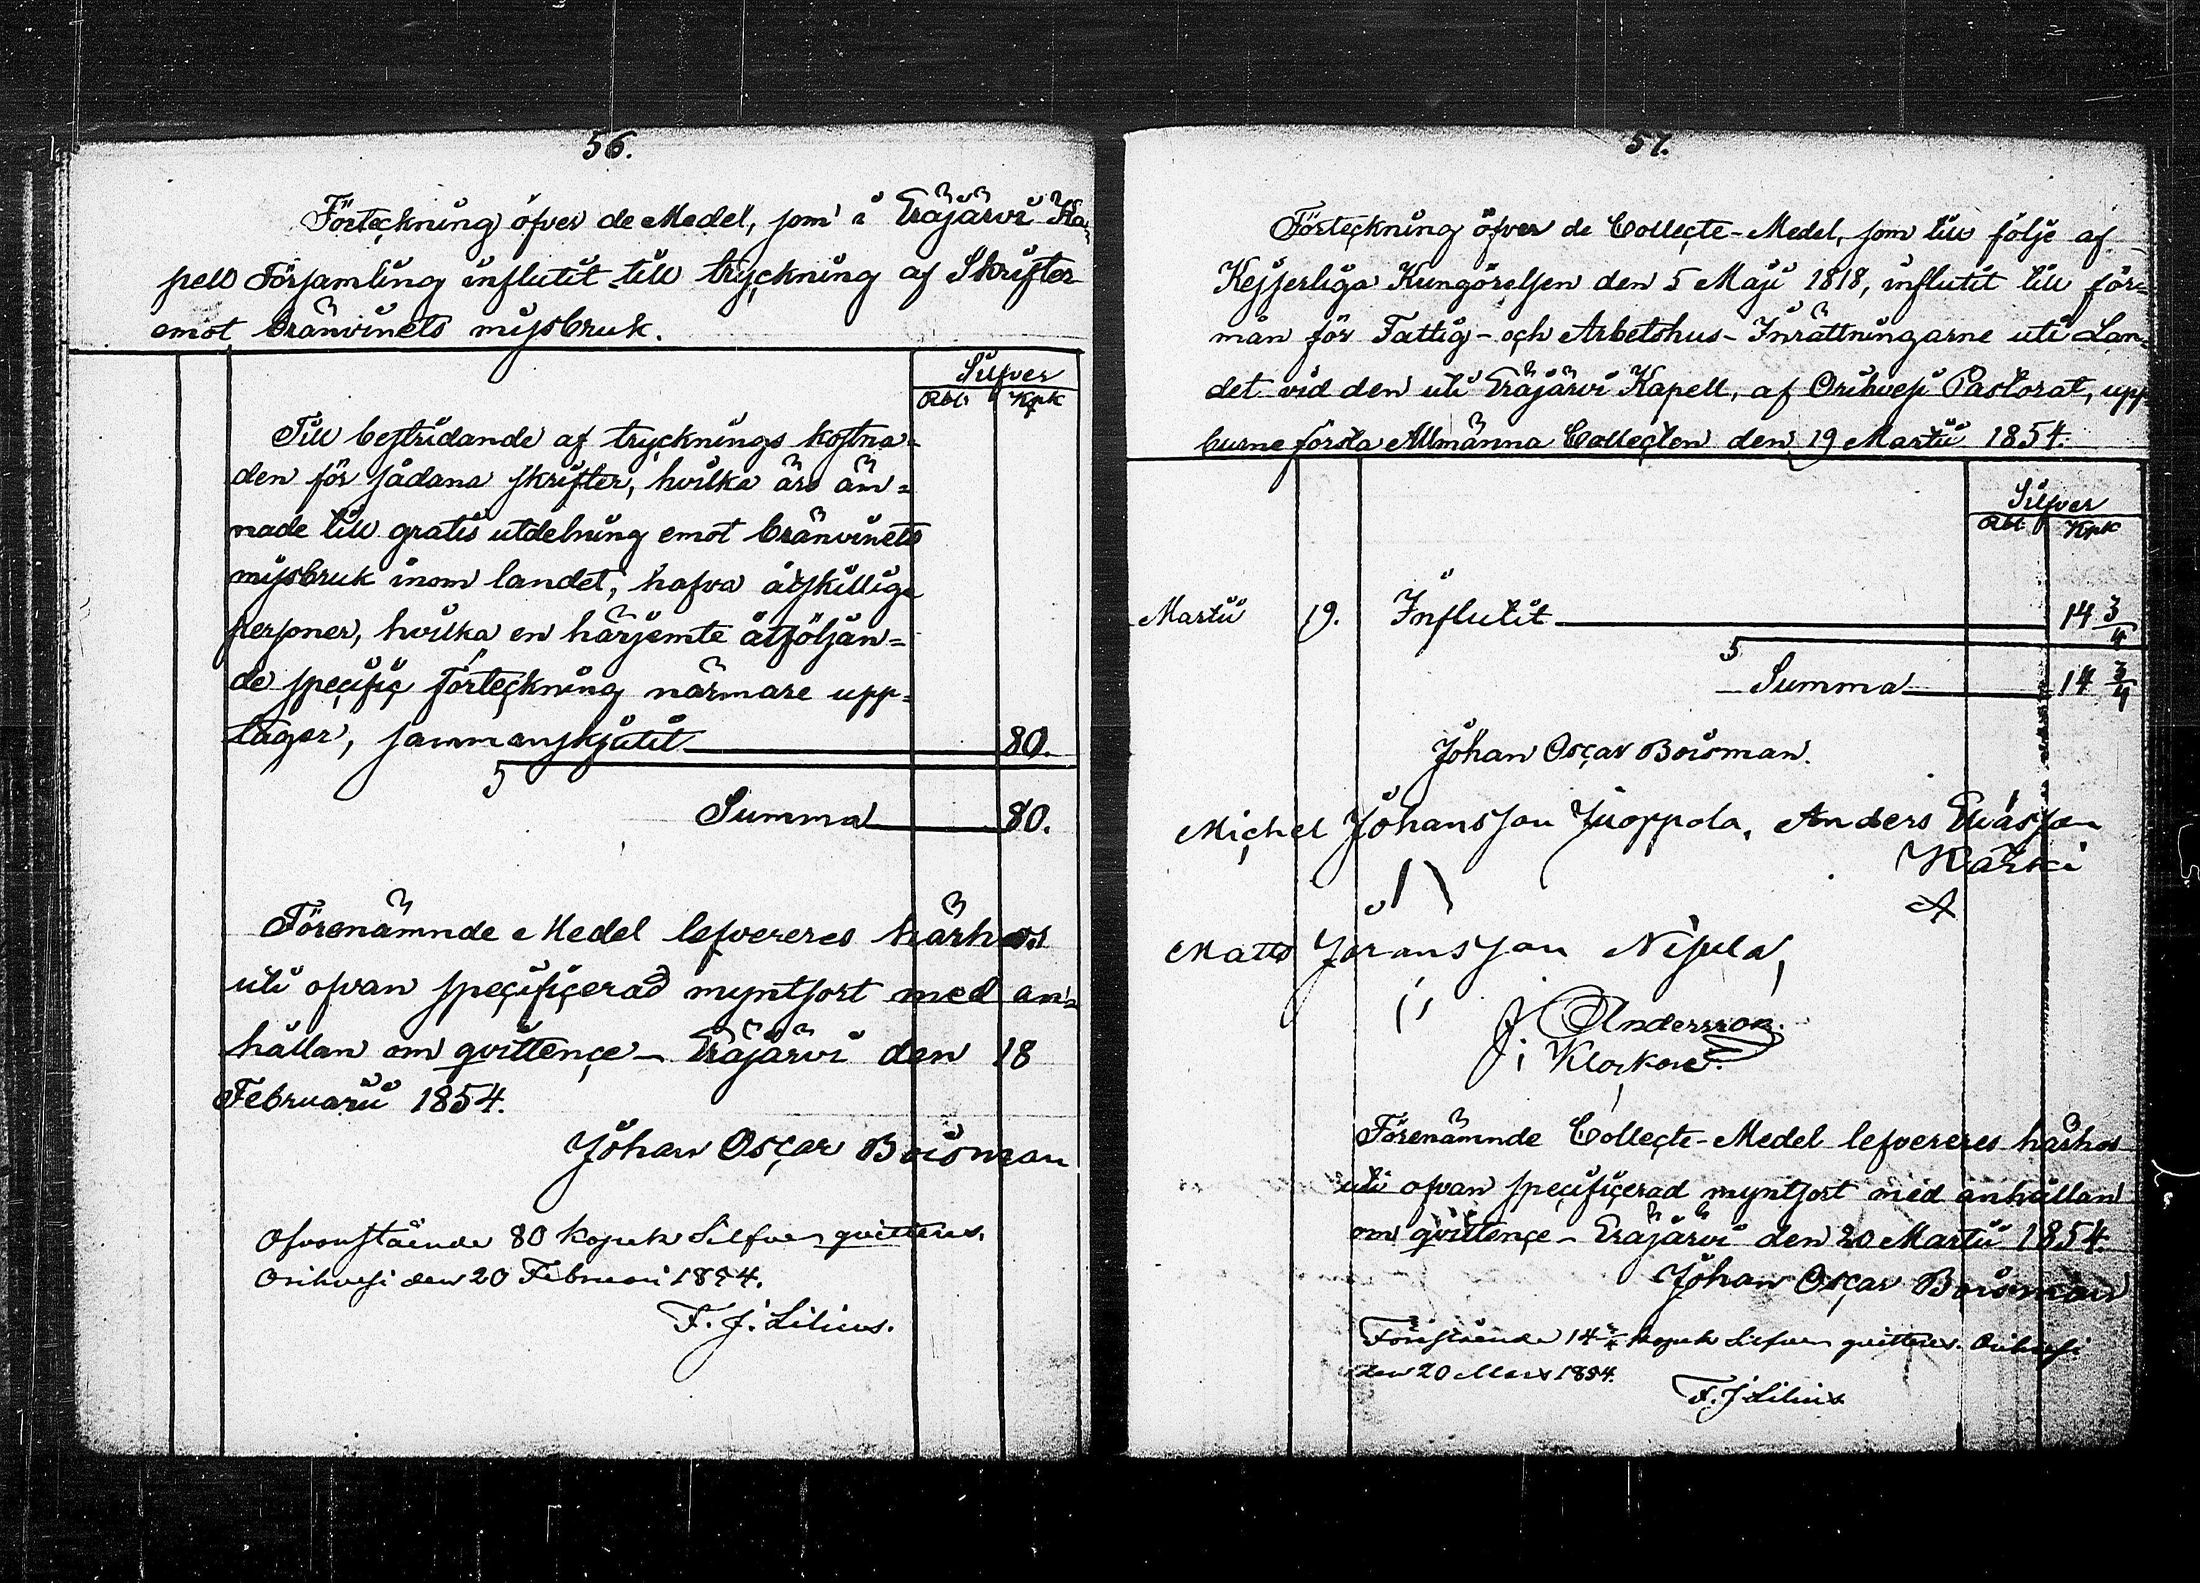 56.
Förteckning öfver de Medel, som i Eräjärvi Ka-
pell Församling influtit till tryckning af Skrifter
emot bränvinets missbruk.
Silfver
Rbl. Kpk
Till bestridande af trycknings kostna-
den för sådana skrifter, hvilka äro äm-
nade till gratis utdelning emot bränvinets
missbruk inom landet, hafva åtskillige
personer, hvilka en härjemte åtföljan-
de specifiç förteckning närmare upp-
tager, sammanskjutit 80.
Summa 80.
Förenämnde Medel lefvereres härhos
uti ofvan specificerad myntsort med an-
hållan om qvittençe – Eräjärvi den 18
Februarii 1854.
Johan Oscar Boisman
Ofvanstående 80 kopek Silfver qvitteras.
Orihvesi den 20 Februari 1854.
F. J. Lilius.
57.
Förteckning öfver de Collecte-Medel, som till följe af
Kejserliga Kungörelsen den 5 Maji 1818, influtit till för-
mån för Fattig- och Arbetshus-Inrättningarne uti Lan-
det vid den uti Eräjärvi Kapell, af Orihvesi Pastorat, upp-
burne första Allmänna Collecten den 19 Martii 1854.
Silfver
Rbl. Kpk
Martii 19. Influtit 14 3/4
Summa 14 3/4
Johan Oscar Boisman.
Michel Johansson Juoppola, Anders Eliasson
Kärki
Matts Göransson Nijula,
J. Andersson.
Klockare.
Förenämnde Collecte-Medel lefvereres härhos
uti ofvan specificerad myntsort med anhållan
om qvittençe – Eräjärvi den 20 Martii 1854.
Johan Oscar Boisman
Förestående 14 3/4 kopek Silfver qvitteras. Orihvesi
den 20 Mars 1854.
F. J Lilius